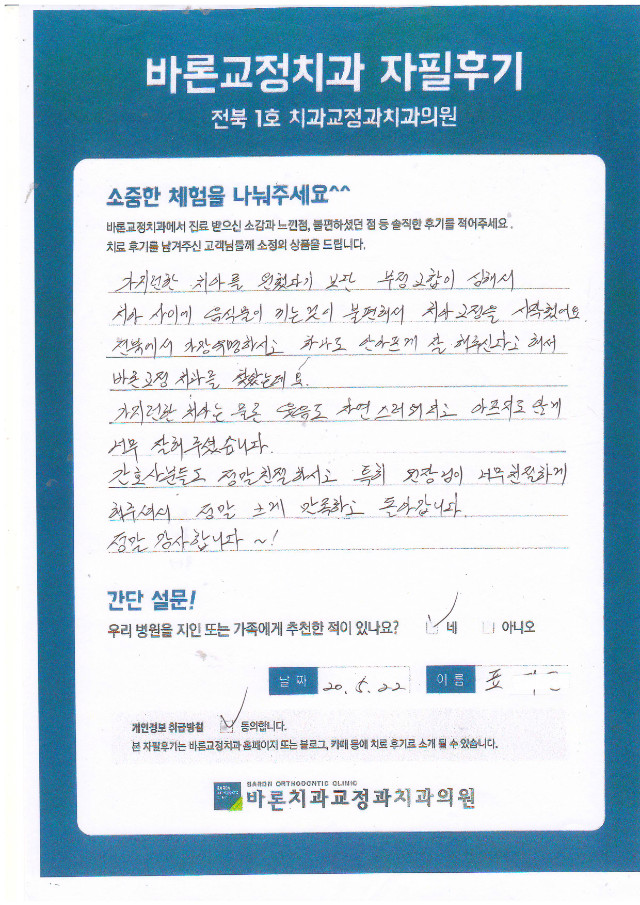 바론교정치과 자필후기
전북 1호 치과교정과치과의원
소중한 체험을 나눠주세요^^
바론교정치과에서 진료 받으신 소감과 느낀점, 불편하셨던 점 등 솔직한 후기를 적어주세요.
치료 후기를 남겨주신 고객님들께 소정의 상품을 드립니다.
가지런한 치아를 원했다기 보단 부정교합이 심해서
치아 사이에 음식물이 끼는것이 불편해서 치아교정을 시작했어요
전북에서 가장유명하시고 하나도 안아프게 잘 해주신다고 해서
바론교정 치과를 찾았는데요.
가지런한 치아는 물론 웃음도 자연스러워지고 아프지도 않게
너무 잘해주셨습니다.
간호사분들도 정말친절하시고 특히 원장님이 너무친절하게
해주셔서 정말 크게 만족하고 돌아갑니다.
정말 감사합니다 ~!
간단 설문!
우리 병원을 지인 또는 가족에게 추천한 적이 있나요? 네 아니오
날 짜 20. 5. 22 이 름 표
개인정보 취급방침 동의합니다.
본 자필후기는 바론교정치과 홈페이지 또는 블로그, 카페 등에 치료 후기로 소개 될 수 있습니다.
BARON ORTHODONTIC CLINIC
바론치과교정과치과의원